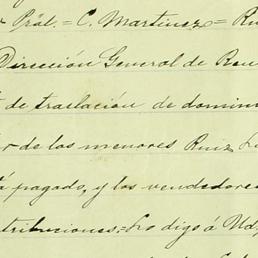 Prál.= C. Martinez = Ru
Dirección General de Ren
de traslación de domin
r de los menores Ruiz
á pagado, y los vendedores
tribuciones.= Lo digo á Ud.